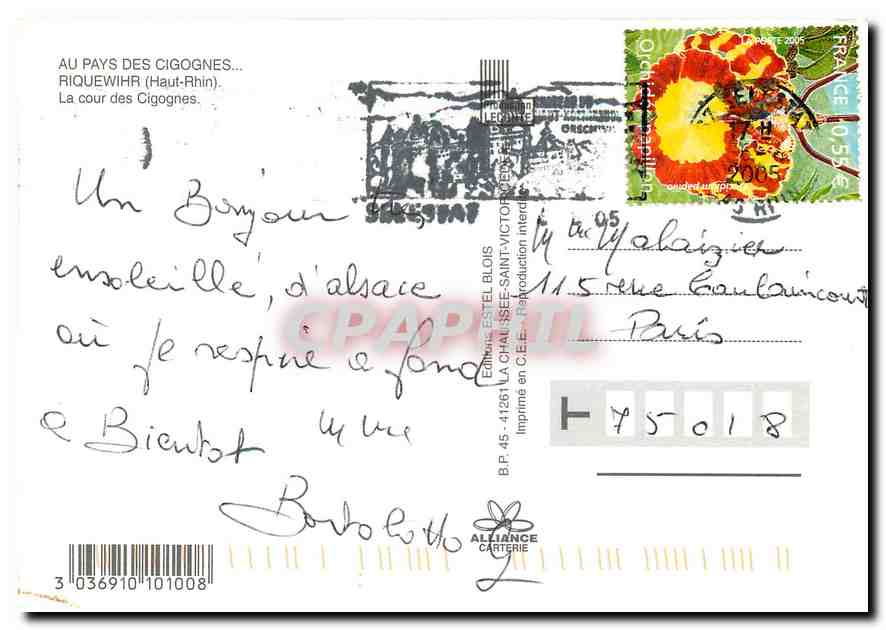 AU PAYS DES CIGOGNES...
RIQUEWIHR (Haut-Rhin).
La cour des Cigognes.
Un Bonjour très
ensoleillé, d'alsace
où je respire a fond
a Bientot Mme
Bortolotto
3 036910 101008
Editions ESTEL BLOIS
B.P. 45 - 41261 LA CHAUSSEE-SAINT-VICTOR CEDEX
Imprimé en C.E.E. - Reproduction interdite
ALLIANCE
CARTERIE
LA POSTE 2005
FRANCE 0,55€
Orchidée papillon
Psychopsis papilio
17 H
2005
05
Mme Malaizier
115 rue Caulaincourt
Paris
T 75018
CPAPHIL